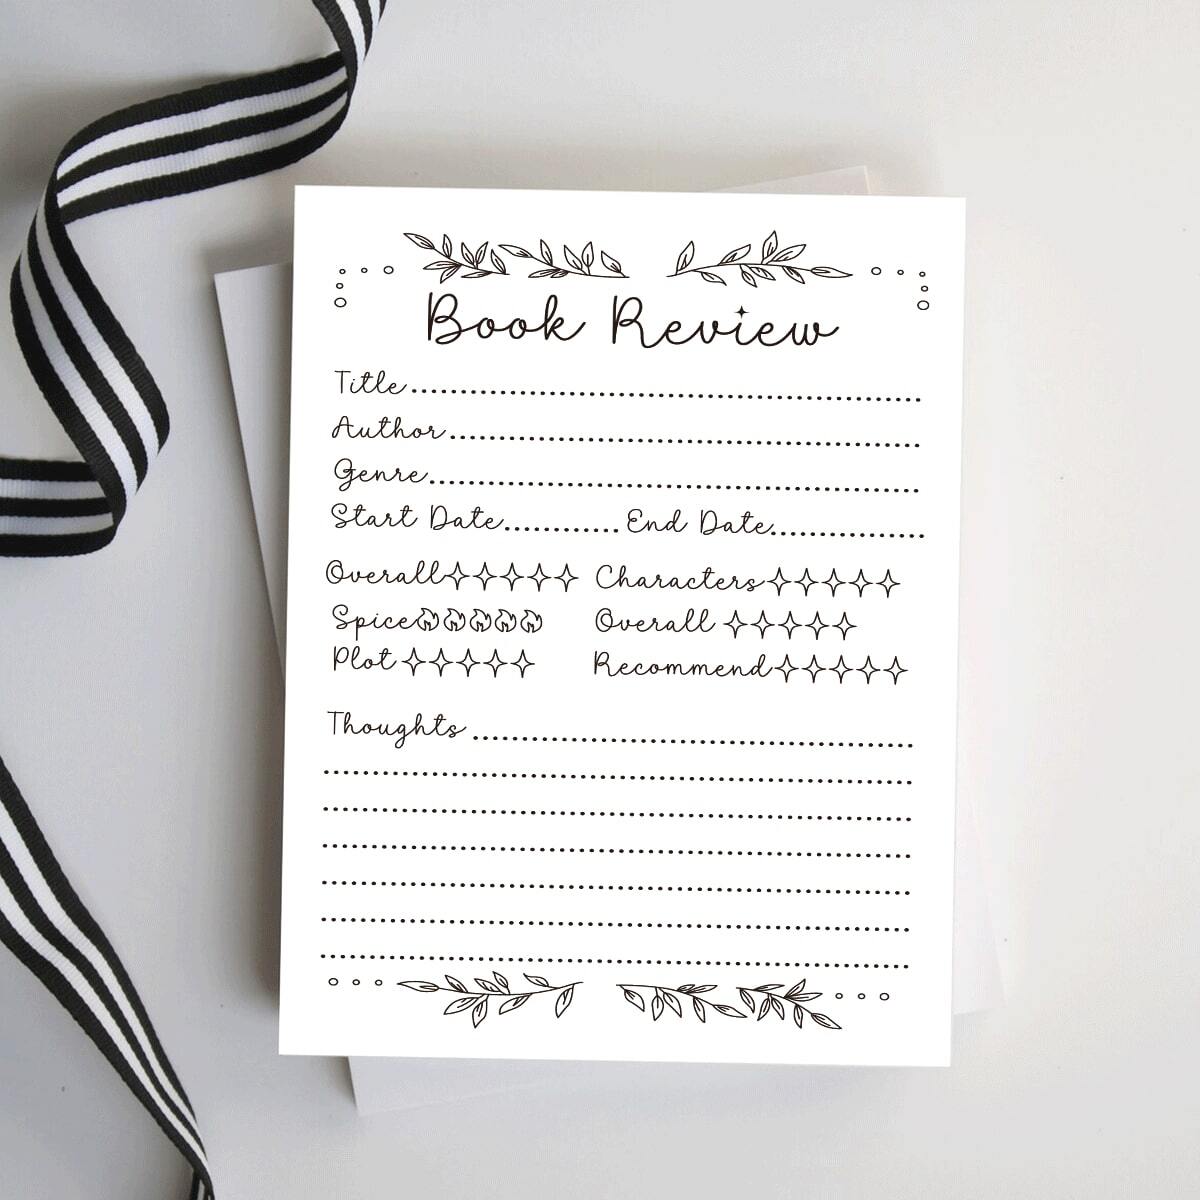 Book Review
Title
Author
Genre
Start Date End Date
Overall Characters
Spice Overall
Plot Recommend
Thoughts